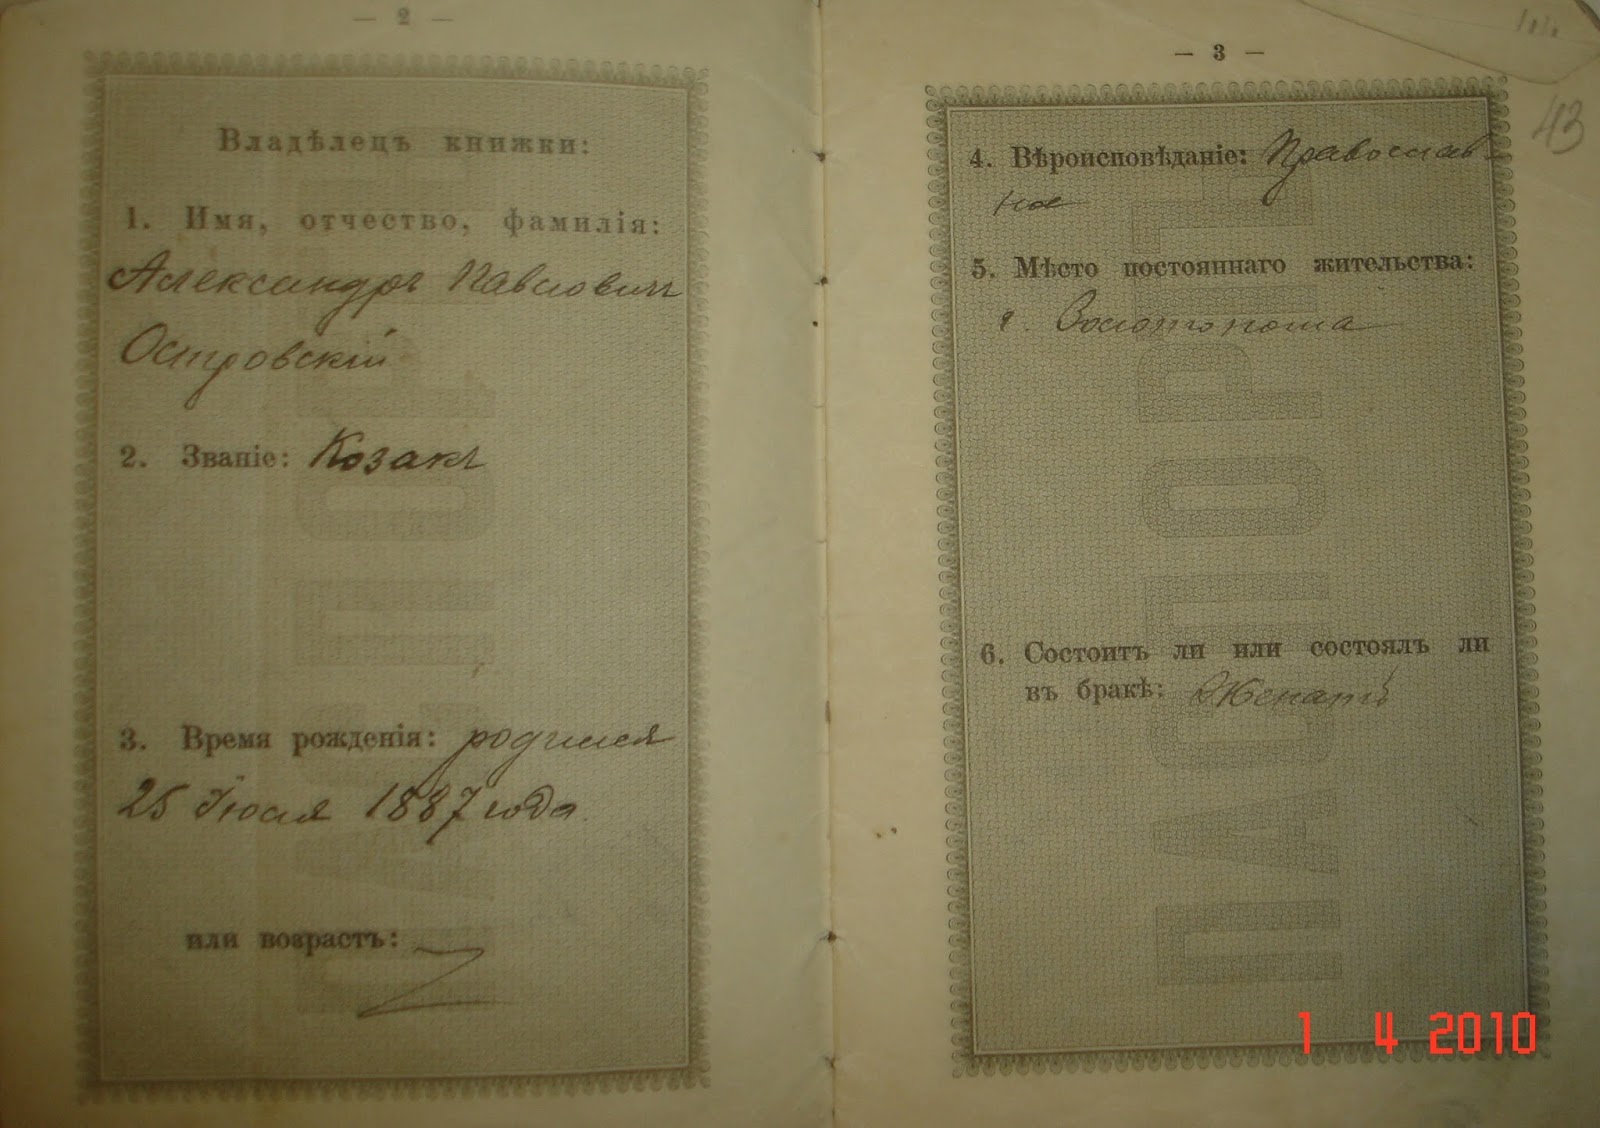 — 2 —
Владѣлецъ книжки:
1. Имя, отчество, фамилія:
Александръ Павловичъ
Островскій
2. Званіе: Козакъ
3. Время рожденія: родился
25 Іюля 1887 года.
или возрастъ:
— 3 —
43
4. Вѣроисповѣданіе: Православ-
ное
5. Мѣсто постояннаго жительства:
г. Золотоноша
6. Состоитъ ли или состоялъ ли
въ бракѣ: Женатъ
ПАСПОРТ
1 4 2010